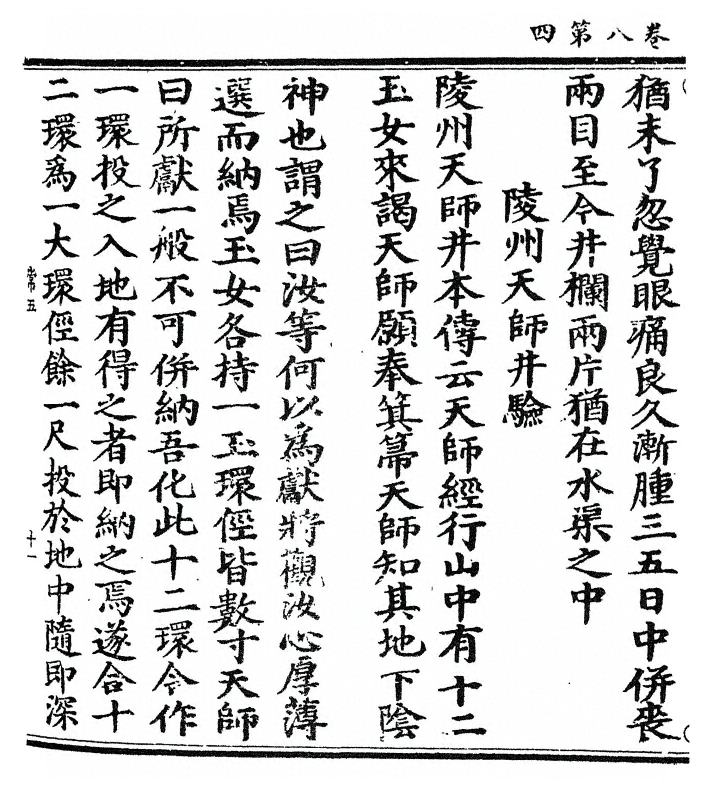 四第八卷
猶未了忽覺眼痛良久漸腫三五日中併喪
兩目至今井欄兩片猶在水渠之中
陵州天師井驗
陵州天師井本傳云天師經行山中有十二
玉女來謁天師願奉箕箒天師知其地下陰
神也謂之曰汝等何以為獻將觀汝心厚薄
選而納焉玉女各持一玉環俓皆數寸天師
曰所獻一般不可併納吾化此十二環令作
一環投之入地有得之者即納之焉遂合十
二環爲一大環俓餘一尺投於地中隨即深
常五
十一